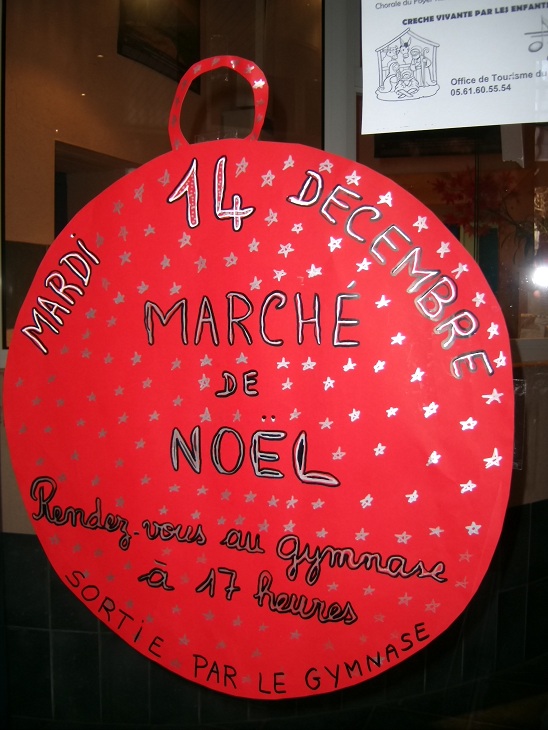 Chorale du Foyer
CRECHE VIVANTE PAR LES ENFANT
Office de Tourisme du
05.61.60.55.54
MARDI 14 DECEMBRE
MARCHÉ
DE
NOËL
Rendez-vous au gymnase
à 17 heures
SORTIE PAR LE GYMNASE